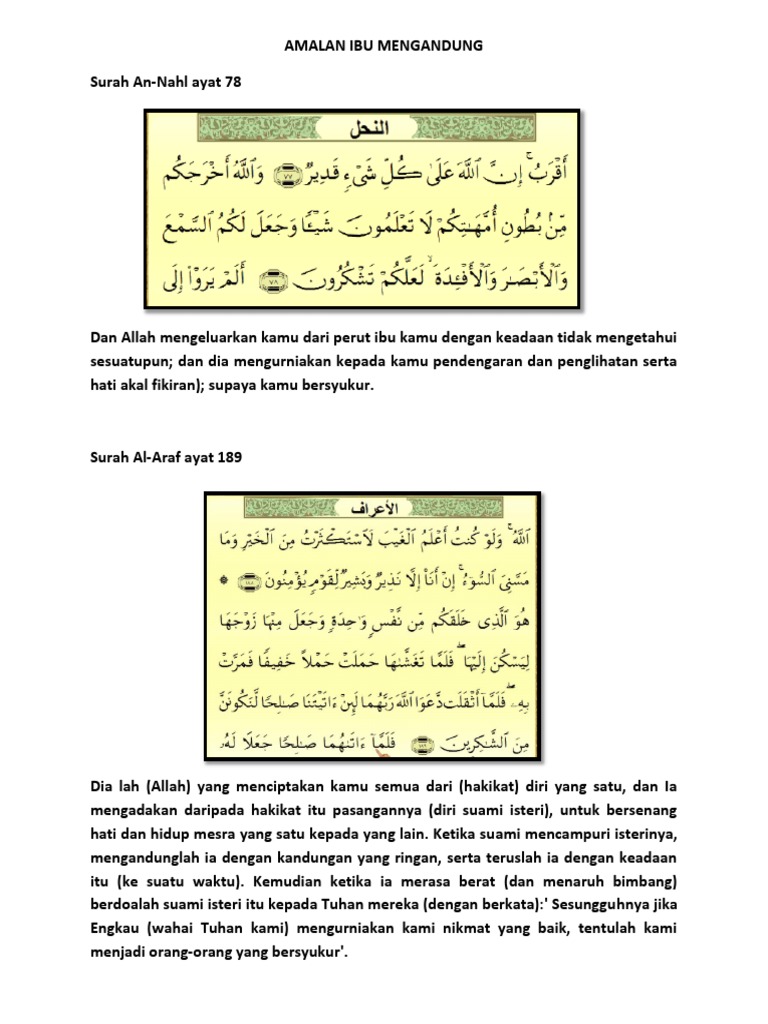 AMALAN IBU MENGANDUNG
Surah An-Nahl ayat 78
النحل
أَقْرَبُ ۚ إِنَّ ٱللَّهَ عَلَىٰ كُلِّ شَىْءٍ قَدِيرٌ ٧٧ وَٱللَّهُ أَخْرَجَكُم
مِّنۢ بُطُونِ أُمَّهَـٰتِكُمْ لَا تَعْلَمُونَ شَيْـًٔا وَجَعَلَ لَكُمُ ٱلسَّمْعَ
وَٱلْأَبْصَـٰرَ وَٱلْأَفْـِٔدَةَ ۙ لَعَلَّكُمْ تَشْكُرُونَ ٧٨ أَلَمْ يَرَوْا۟ إِلَى
Dan Allah mengeluarkan kamu dari perut ibu kamu dengan keadaan tidak mengetahui
sesuatupun; dan dia mengurniakan kepada kamu pendengaran dan penglihatan serta
hati akal fikiran); supaya kamu bersyukur.
Surah Al-Araf ayat 189
الأعراف
ٱللَّهُ ۚ وَلَوْ كُنتُ أَعْلَمُ ٱلْغَيْبَ لَٱسْتَكْثَرْتُ مِنَ ٱلْخَيْرِ وَمَا
مَسَّنِىَ ٱلسُّوٓءُ ۚ إِنْ أَنَا۠ إِلَّا نَذِيرٌ وَبَشِيرٌ لِّقَوْمٍ يُؤْمِنُونَ ١٨٨ ۞
هُوَ ٱلَّذِى خَلَقَكُم مِّن نَّفْسٍ وَٰحِدَةٍ وَجَعَلَ مِنْهَا زَوْجَهَا
لِيَسْكُنَ إِلَيْهَا ۖ فَلَمَّا تَغَشَّىٰهَا حَمَلَتْ حَمْلًا خَفِيفًا فَمَرَّتْ
بِهِۦ ۖ فَلَمَّآ أَثْقَلَت دَّعَوَا ٱللَّهَ رَبَّهُمَا لَئِنْ ءَاتَيْتَنَا صَـٰلِحًا لَّنَكُونَنَّ
مِنَ ٱلشَّـٰكِرِينَ ١٨٩ فَلَمَّآ ءَاتَىٰهُمَا صَـٰلِحًا جَعَلَا لَهُۥ
Dia lah (Allah) yang menciptakan kamu semua dari (hakikat) diri yang satu, dan Ia
mengadakan daripada hakikat itu pasangannya (diri suami isteri), untuk bersenang
hati dan hidup mesra yang satu kepada yang lain. Ketika suami mencampuri isterinya,
mengandunglah ia dengan kandungan yang ringan, serta teruslah ia dengan keadaan
itu (ke suatu waktu). Kemudian ketika ia merasa berat (dan menaruh bimbang)
berdoalah suami isteri itu kepada Tuhan mereka (dengan berkata):' Sesungguhnya jika
Engkau (wahai Tuhan kami) mengurniakan kami nikmat yang baik, tentulah kami
menjadi orang-orang yang bersyukur'.